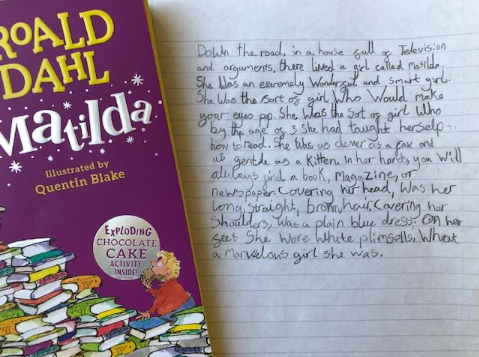 ROALD
DAHL
Matilda
Illustrated by
Quentin Blake
EXPLODING
CHOCOLATE
CAKE
ACTIVITY
INSIDE!
Down the road, in a house full of Television
and arguments, there lived a girl called matilda.
She was an extremely wonderful and smart girl.
She was the sort of girl who would make
your eyes pop. She was the sort of girl who
by the age of 3 she had taught herself
how to read. She was as clever as a fox and
as gentle as a kitten. In her hands you will
always find a book, magazine, or
newspaper. Covering her head, was her
long, straight, brown hair. Covering her
shoulders, was a plain blue dress. On her
feet she wore white plimsolls. What
a marvelous girl she was.